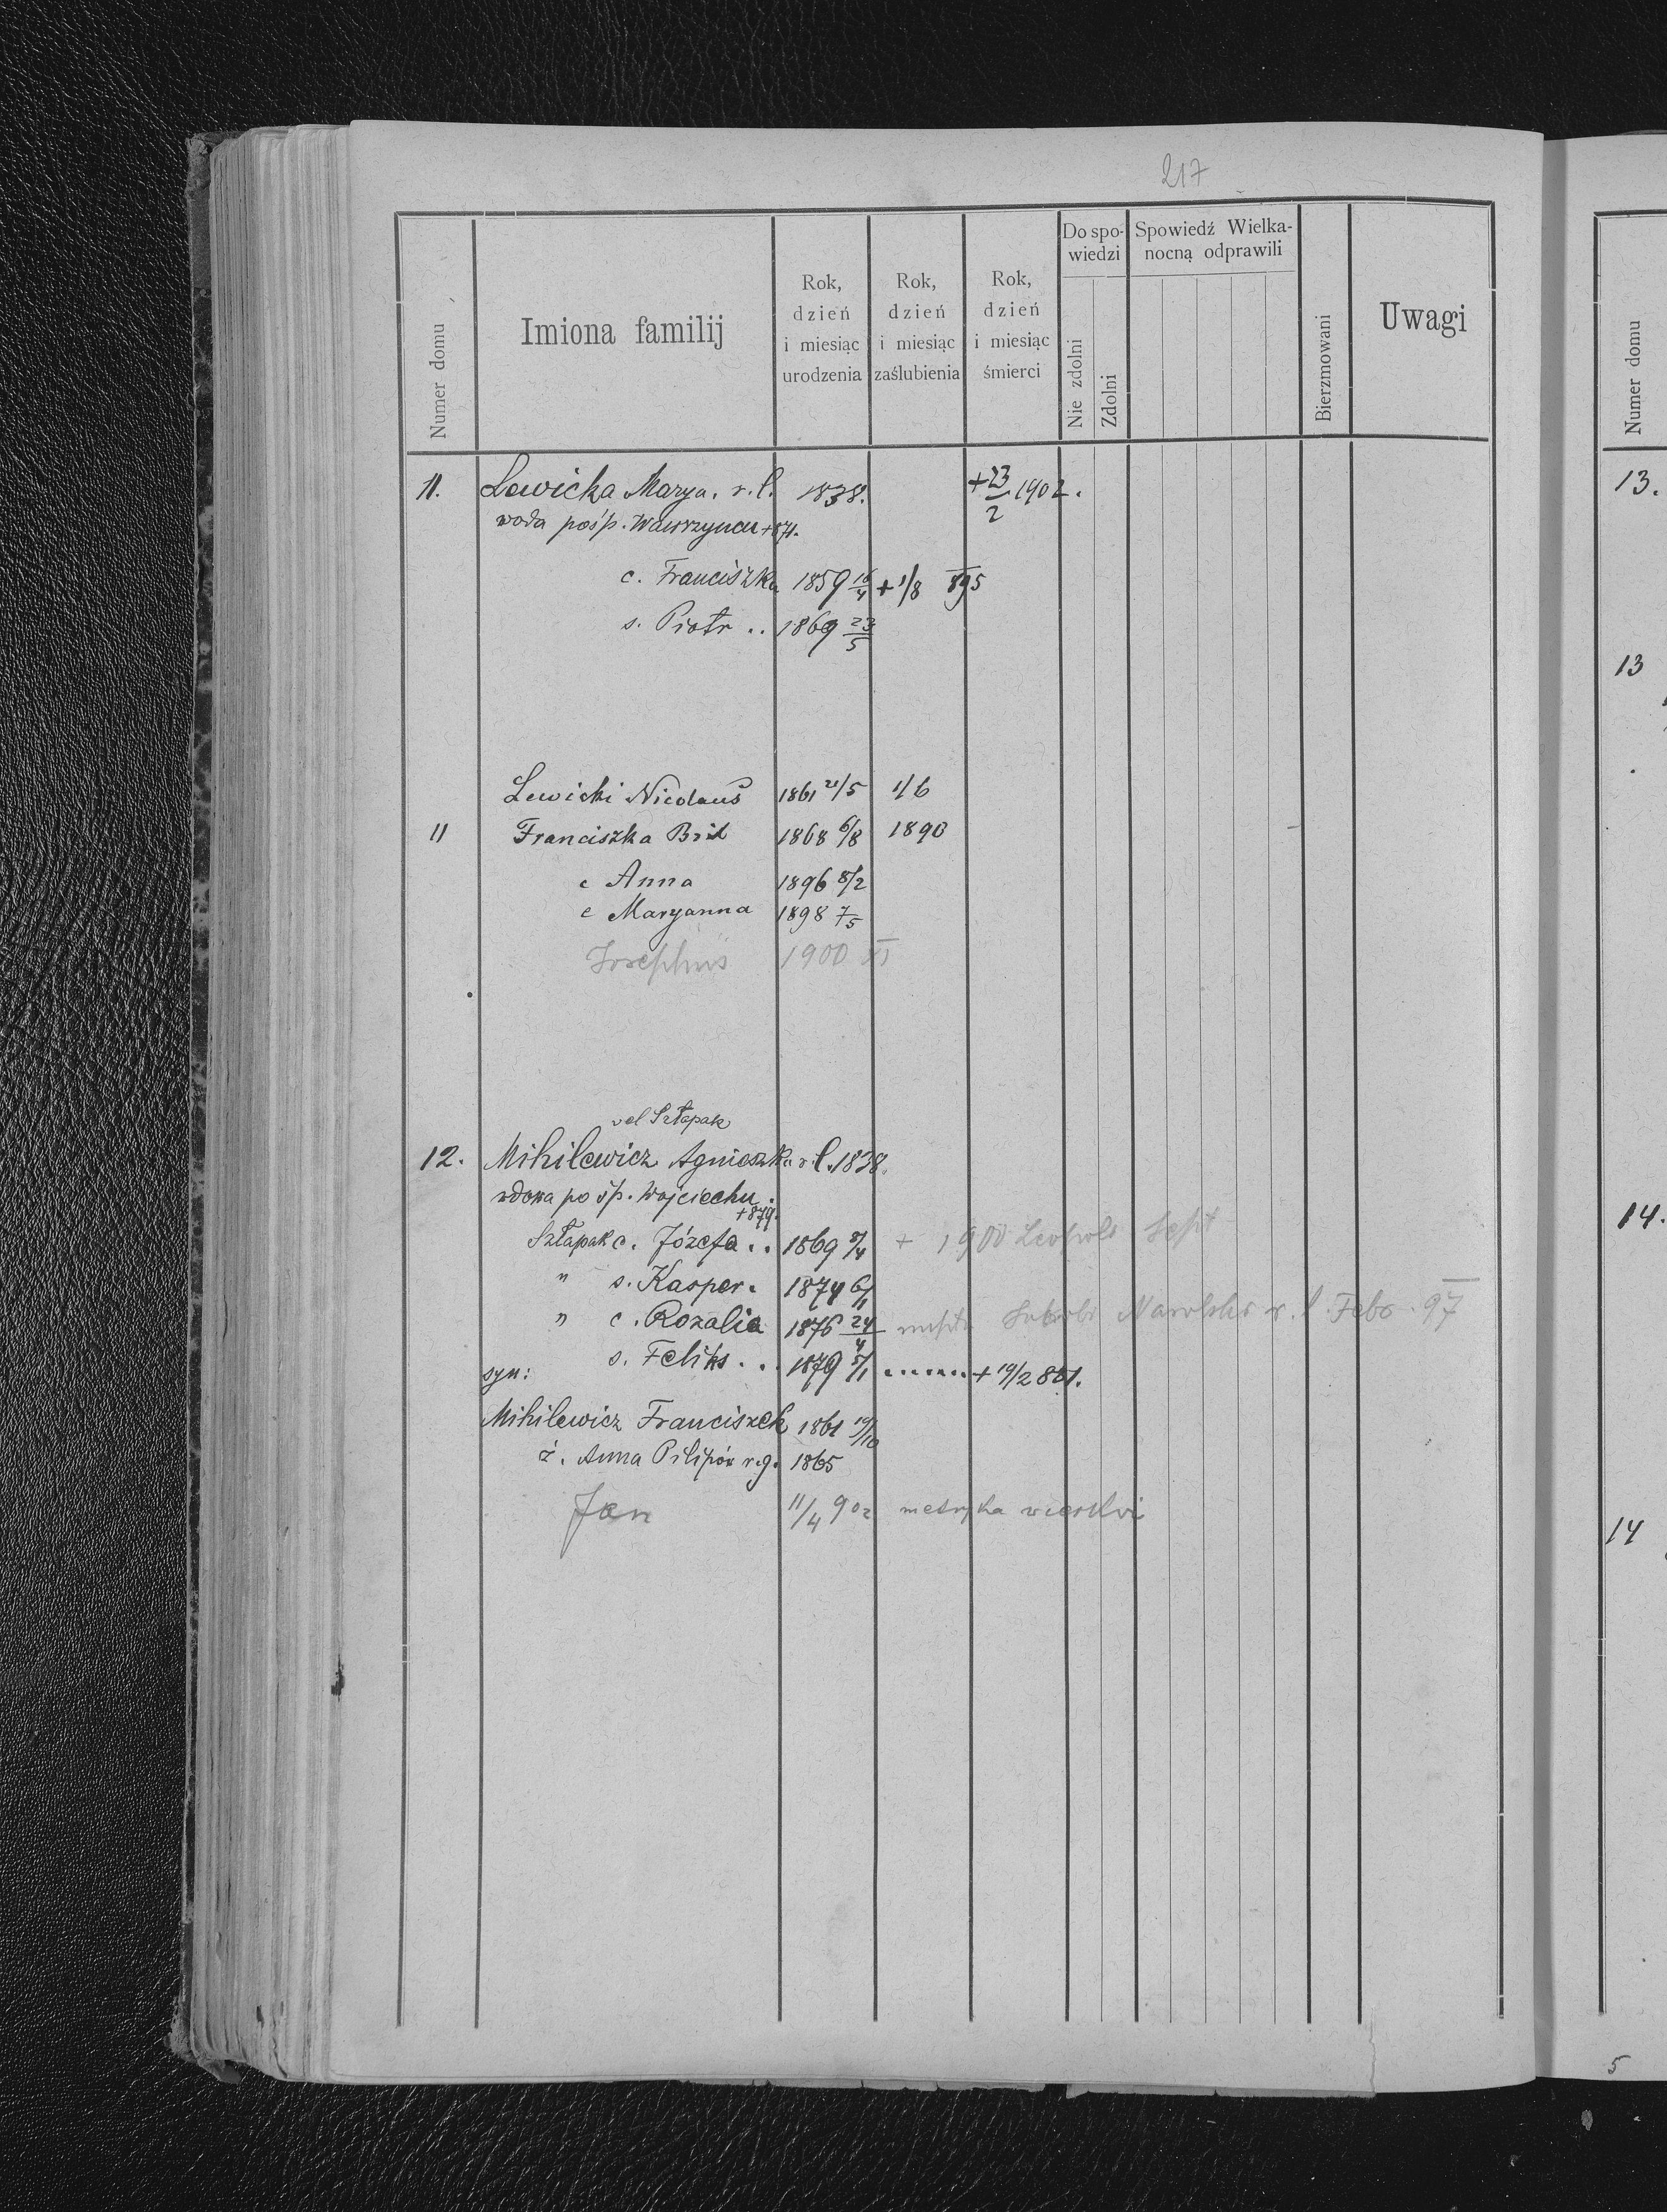 217
Numer domu
Imiona familij
Rok, dzień i miesiąc urodzenia
Rok, dzień i miesiąc zaślubienia
Rok, dzień i miesiąc śmierci
Do spo-wiedzi
Nie zdolni
Zdolni
Spowiedź Wielka-nocną odprawili
Bierzmowani
Uwagi
11. Lewicka Marya. r. l. 1838. +23/2 1902.
wdowa po śp. Wawrzyńcu +871.
c. Franciszka 1859 16/4 + 1/8 895
s. Piotr .. 1869 23/5
Lewicki Nicolaus 1861 21/5 1/6
11 Franciszka Bril 1868 6/8 1890
c Anna 1896 8/2
c Maryanna 1898 7/5
Josephus 1900 XI
vel Szłapak
12. Mihilewicz Agnieszka r. l. 1838.
wdowa po śp. Wojciechu.
+879.
Szłapak c. Józefa .. 1869 8/4 + 1900 Leopold Sept
" s. Kasper. 1874 6/1
" c. Rozalia 1876 24/4 Marolski r. l. Febr. 97
s. Feliks ... 1879 5/1 ....... + 19/2 881.
syn:
Mihilewicz Franciszek 1861 19/10
ż. Anna Pilipów r.g. 1865
Jan 11/4 902 metryka
Numer domu
13.
13
14.
14
5